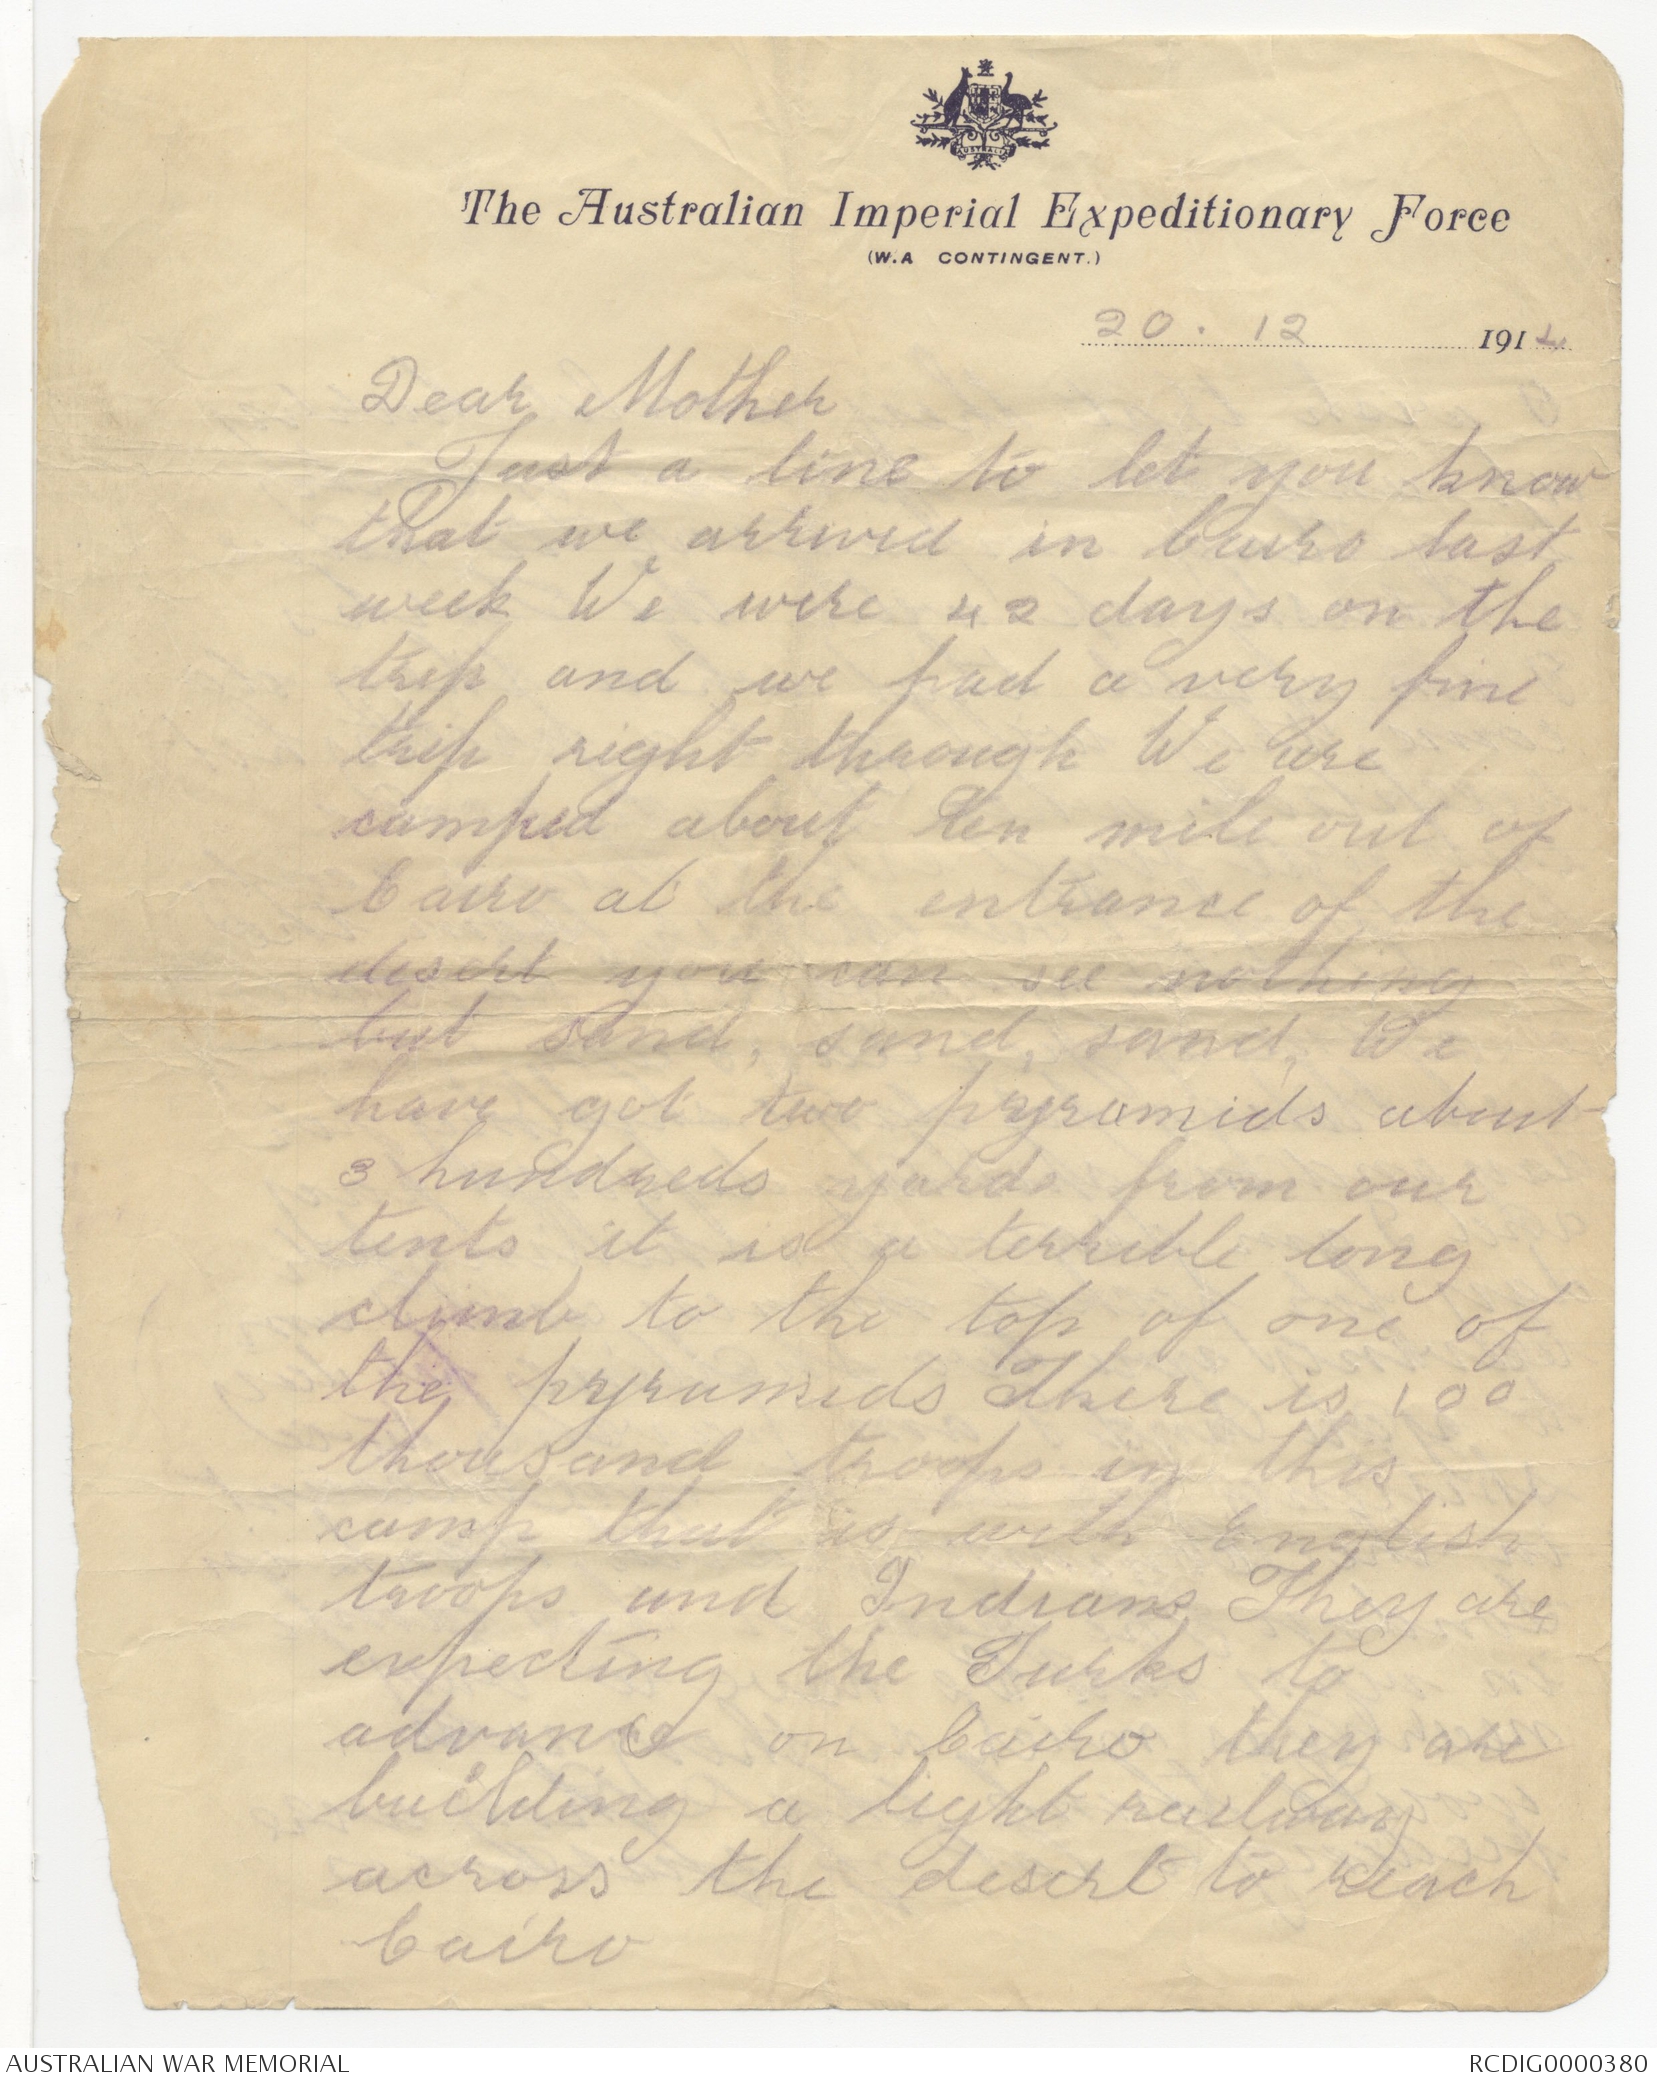 AUSTRALIA
The Australian Imperial Expeditionary Force
(W.A CONTINGENT.)
20 . 12 1914
Dear Mother
Just a line to let you know
that we arrived in Cairo last
week We were 42 days on the
trip and we had a very fine
trip right through We are
camped about ten mile out of
Cairo at the entrance of the
desert you can see nothing
but sand, sand, sand, We
have got two pryramids about
3 hundreds yards from our
tents it is a terrible long
climb to the top of one of
the pryramids There is 100
thousand troops in this
camp that is with English
troops and Indians They are
expecting the Turks to
advance on Cairo they are
building a light railway
across the desert to reach
Cairo
AUSTRALIAN WAR MEMORIAL
RCDIG0000380